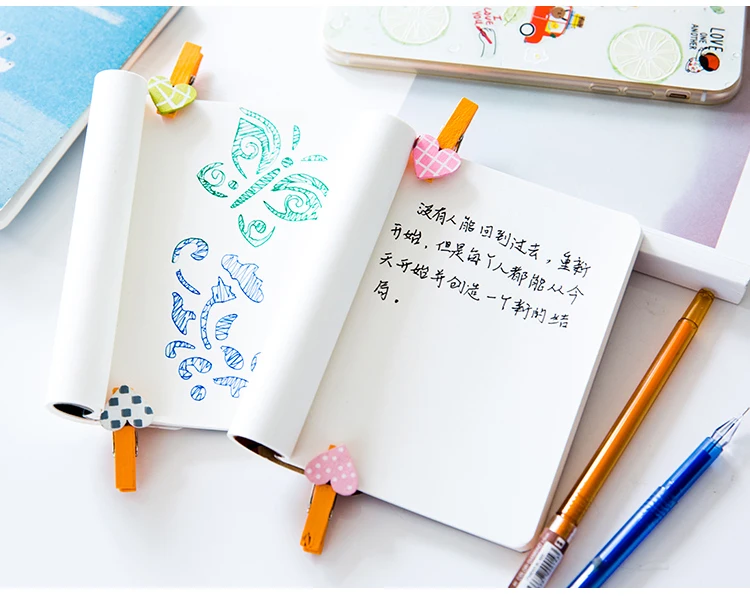 I LOVE
LOVE
ONE
ANOTHER
没有人能回到过去，重新
开始，但是每个人都能从今
天开始并创造一个新的结
局。